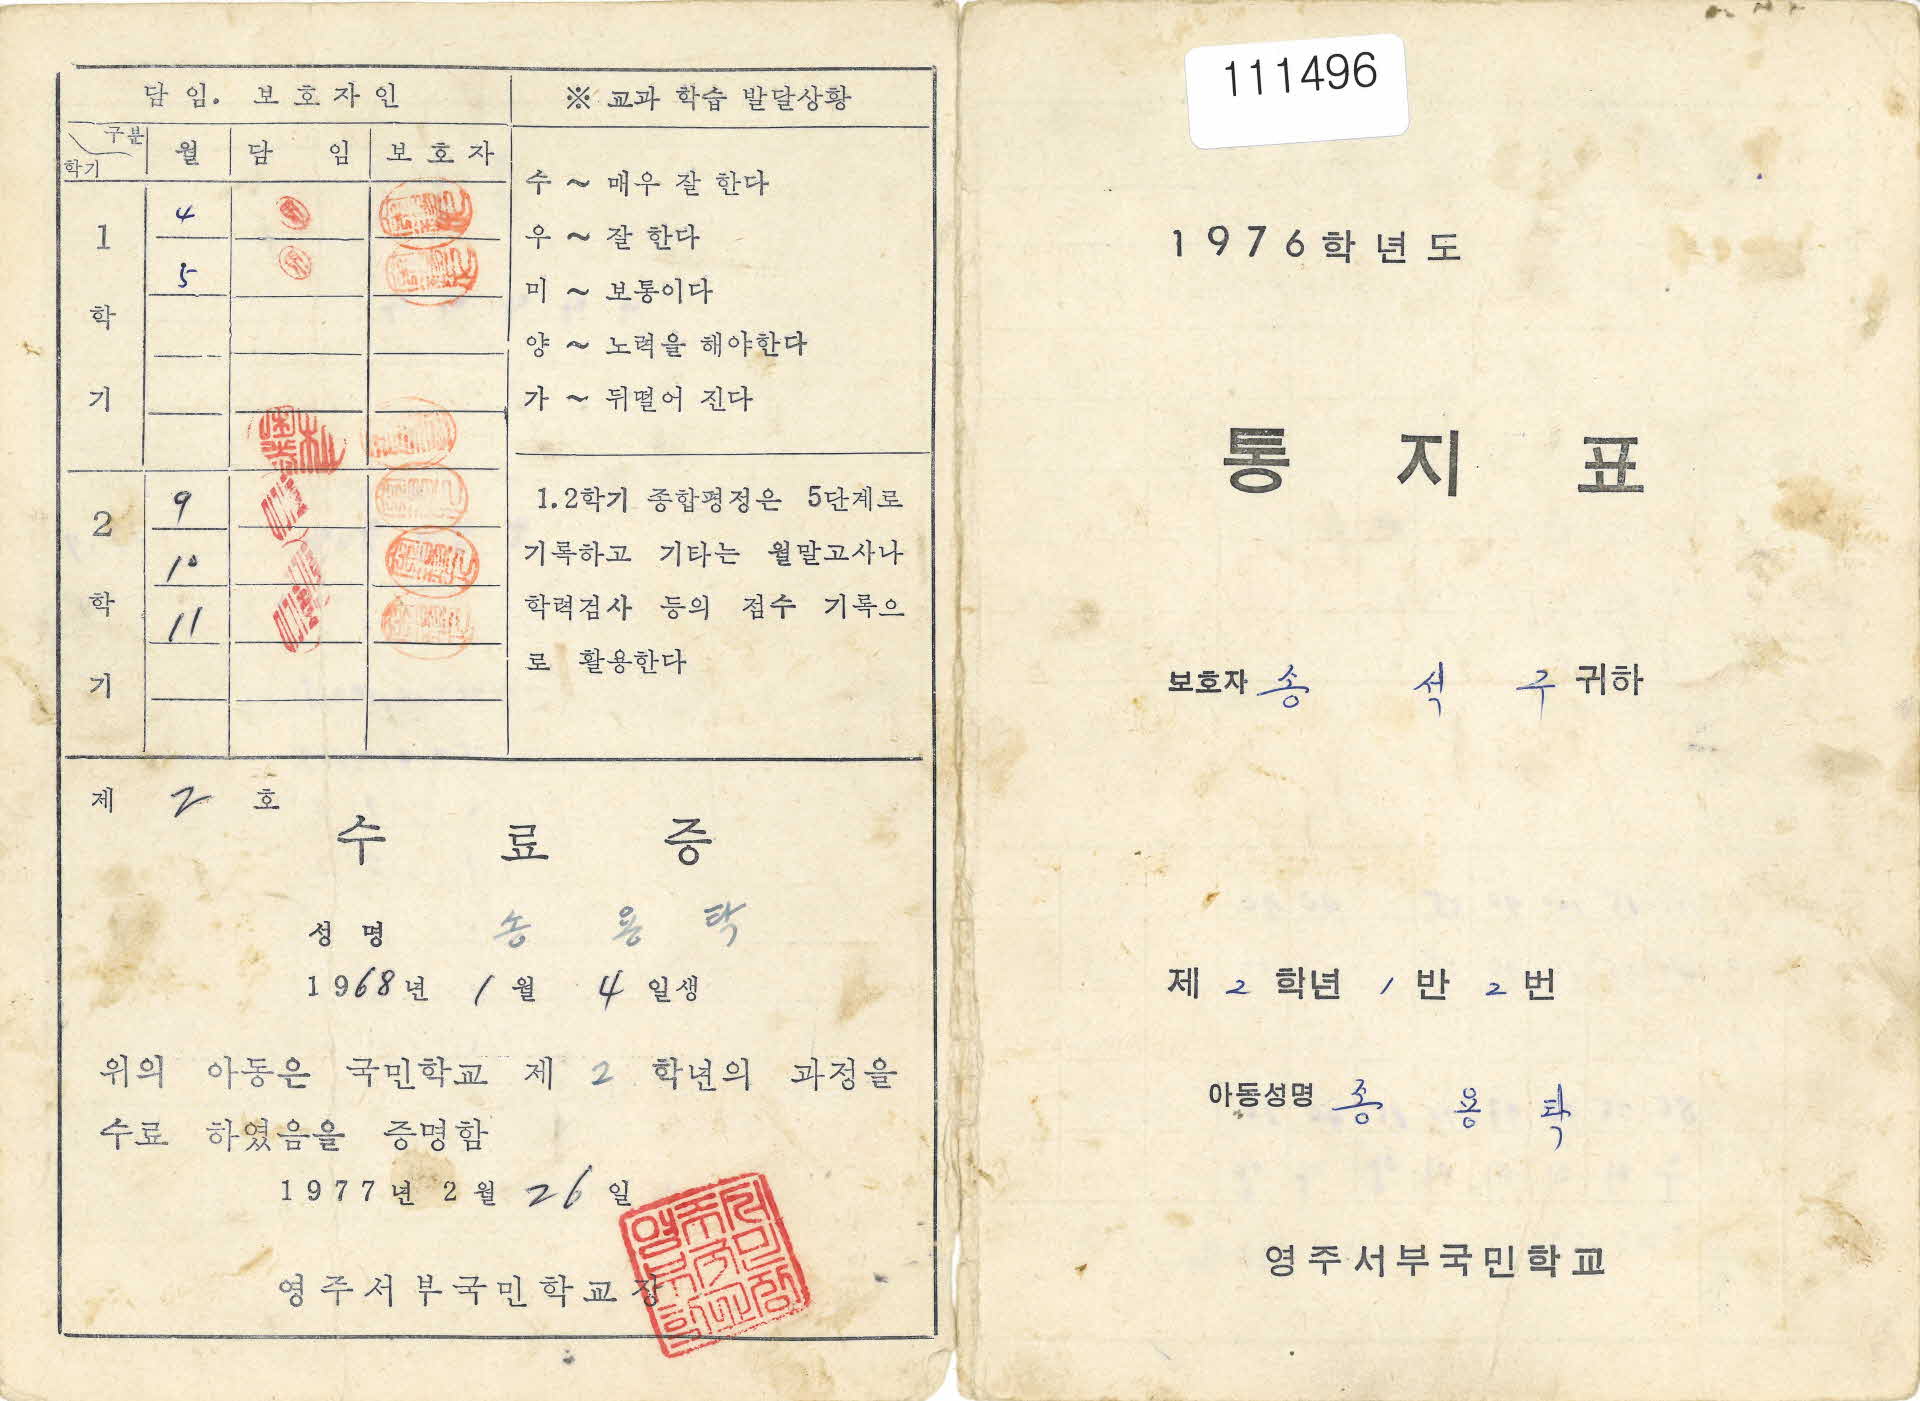 담 임. 보 호 자 인
구분
학기
월
담 임
보 호 자
1 학 기
4
5
2 학 기
9
10
11
※ 교과 학습 발달상황
수 ~ 매우 잘 한다
우 ~ 잘 한다
미 ~ 보통이다
양 ~ 노력을 해야한다
가 ~ 뒤떨어 진다
1.2학기 종합평정은 5단계로
기록하고 기타는 월말고사나
학력검사 등의 점수 기록으
로 활용한다
제 2 호
수 료 증
성 명 송 용 탁
1968년 1월 4일생
위의 아동은 국민학교 제 2 학년의 과정을
수료 하였음을 증명함
1977년 2월 26일
영주서부국민학교장
111496
1976학년도
통 지 표
보호자 송 석 구 귀하
제 2 학년 1 반 2 번
아동성명 송 용 탁
영주서부국민학교